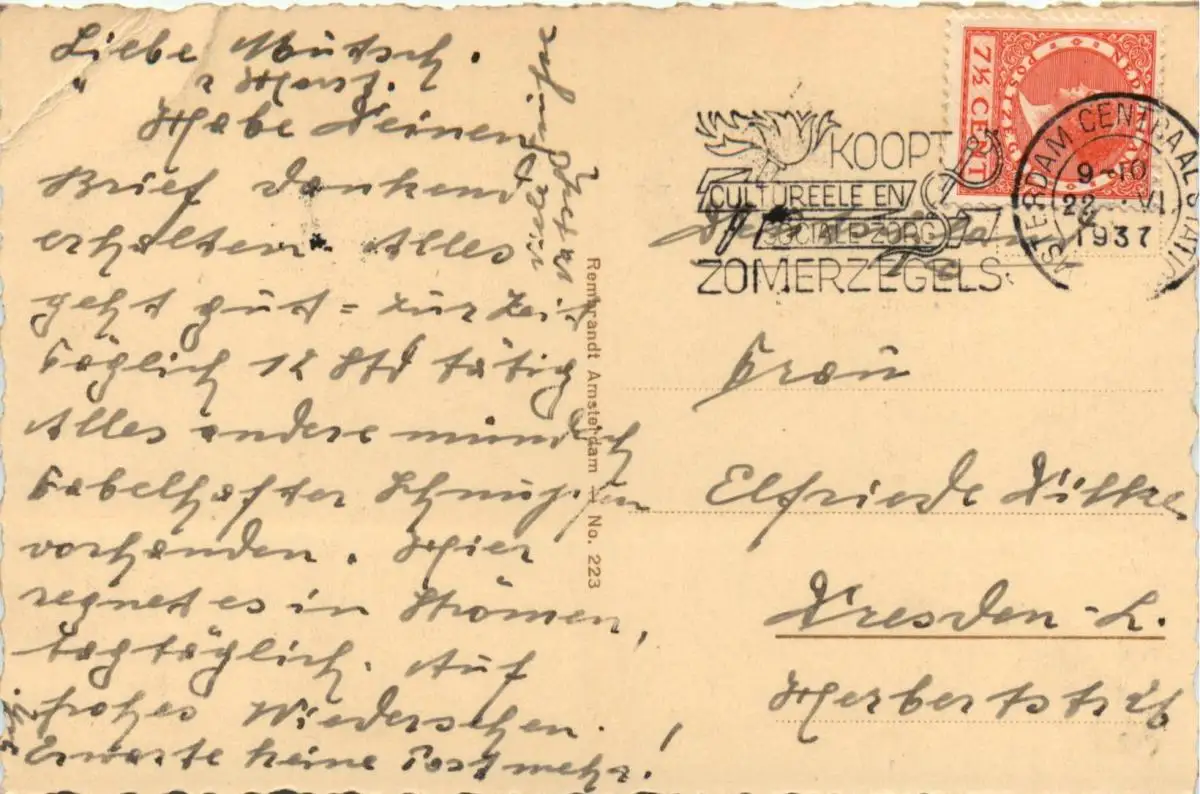 Liebe Mutsch.
" " Horst.
Habe Deinen
Brief dankend
erhalten. Alles
geht gut = zur Zeit
täglich 12 Std tätig
Alles andere mündlich
Fabelhafter Schnupfen
vorhanden. Hier
regnet es in Strömen,
tagtäglich. Auf
frohes Wiedersehen.
Erwarte keine Post mehr!
Rembrandt Amsterdam — No. 223
7½ CENT
NEDERLAND
POSTZEGEL
KOOPT
CULTUREELE EN
SOCIALE ZORG
ZOMERZEGELS
AMSTERDAM CENTRAAL STATION
9-10
22 VI
1937
Deutschland
Frau
Elfriede
Dresden-A.
Herbertstr